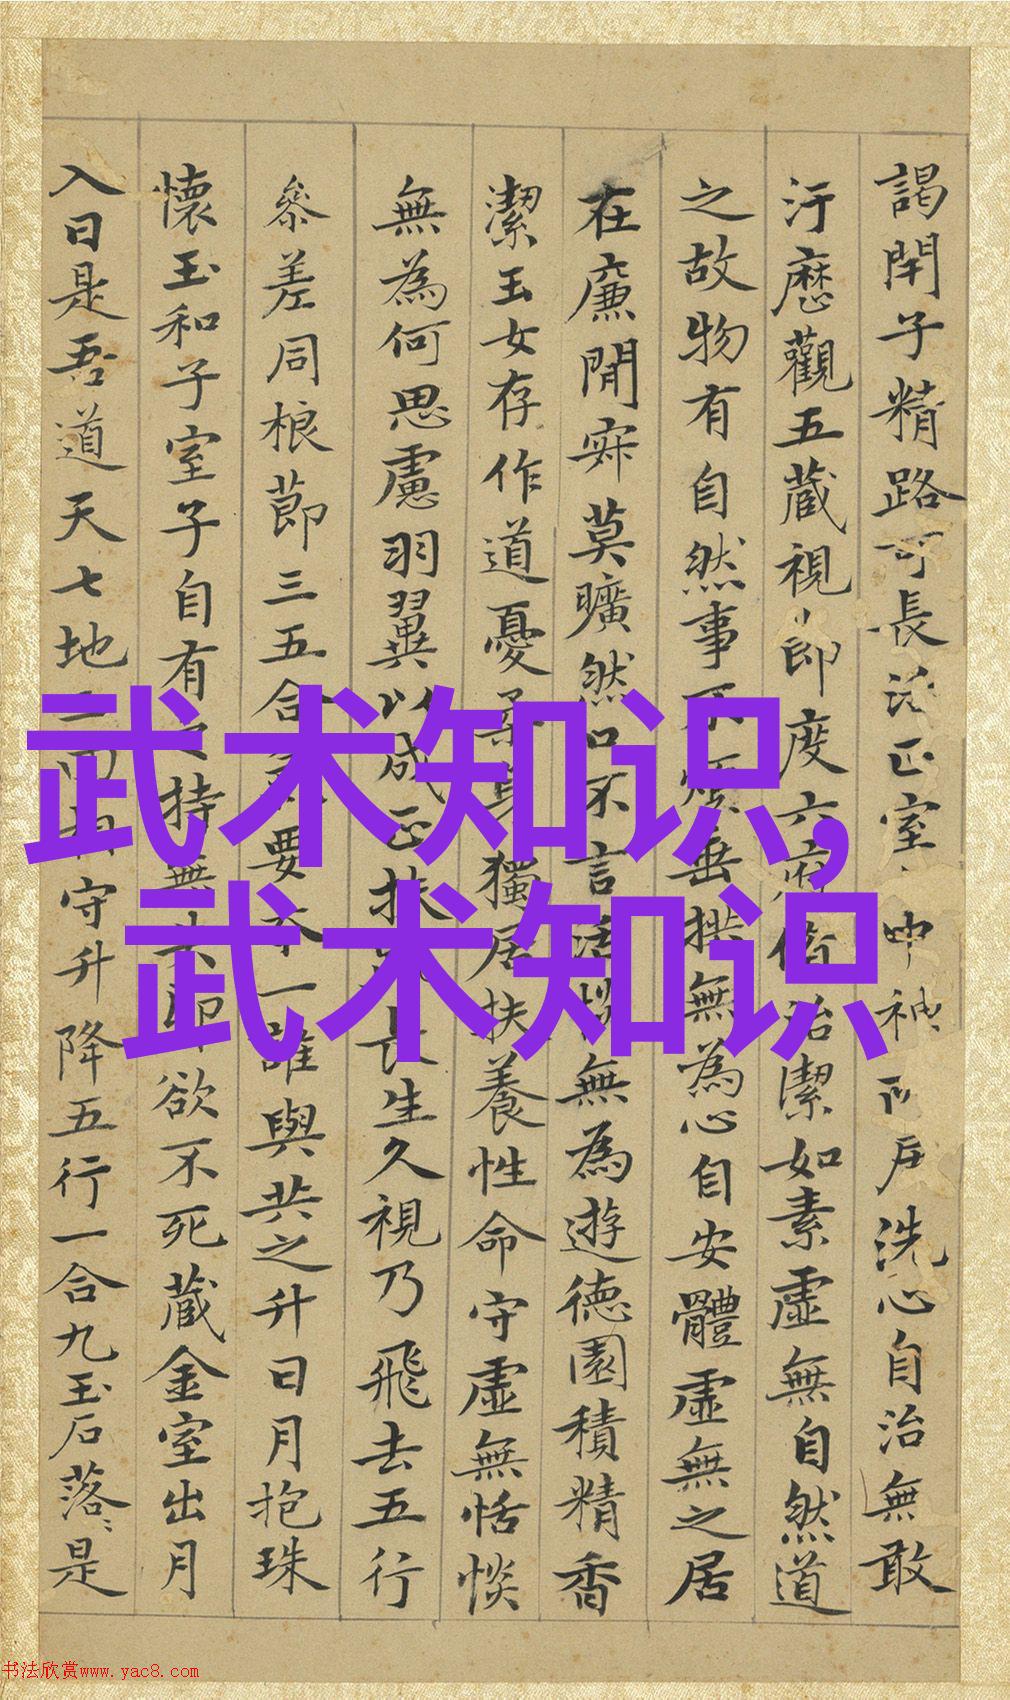 謁閇子精路可長活正室中神所居洗心自治無敢
汙歷觀五藏視節度六府脩治潔如素虛無自然道
之故物有自然事不煩垂拱無為心自安體虛無之居
在廉閒寂莫曠然口不言恬惔無為遊德園積精香
潔玉女存作道憂柔身獨居扶養性命守虛無恬惔
無為何思慮羽翼以成正扶長生久視乃飛去五行
參差同根節三五合要本一誰與共之升日月抱珠
懷玉和子室子自有持無欲不死藏金室出月
入日是吾道天七地守升降五行一合九玉石落〻是
武术知识,
武术知识
书法欣赏www.yac8.com